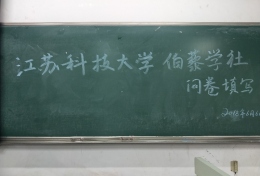 江苏科技大学 伯藜学社
问卷填写